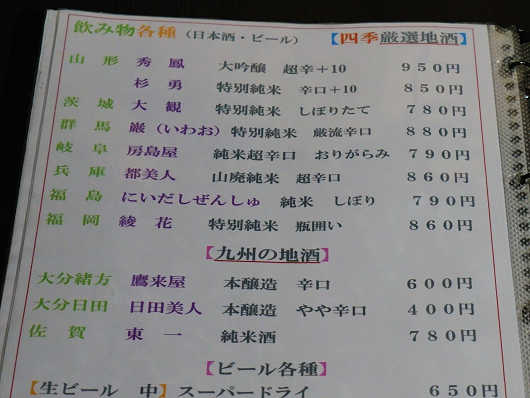 飲み物各種（日本酒・ビール） 【四季厳選地酒】
山形 秀鳳 大吟醸 超辛＋10 ９５０円
杉勇 特別純米 辛口＋10 ８５０円
茨城 大観 特別純米 しぼりたて ７８０円
群馬 巌（いわお） 特別純米 厳流辛口 ８８０円
岐阜 房島屋 純米超辛口 おりがらみ ７９０円
兵庫 都美人 山廃純米 超辛口 ８６０円
福島 にいだしぜんしゅ 純米 しぼり ７９０円
福岡 綾花 特別純米 瓶囲い ８６０円
【九州の地酒】
大分緒方 鷹来屋 本醸造 辛口 ６００円
大分日田 日田美人 本醸造 やや辛口 ４００円
佐賀 東一 純米酒 ７８０円
【ビール各種】
【生ビール 中】スーパードライ ６５０円